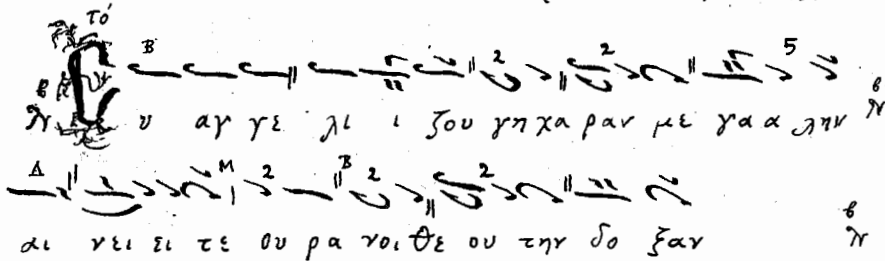 τό
Ε υ αγ γε λι ι ζου γη χα ραν με γα α λην
αι νει ει τε ου ρα νοι Θε ου την δο ξαν